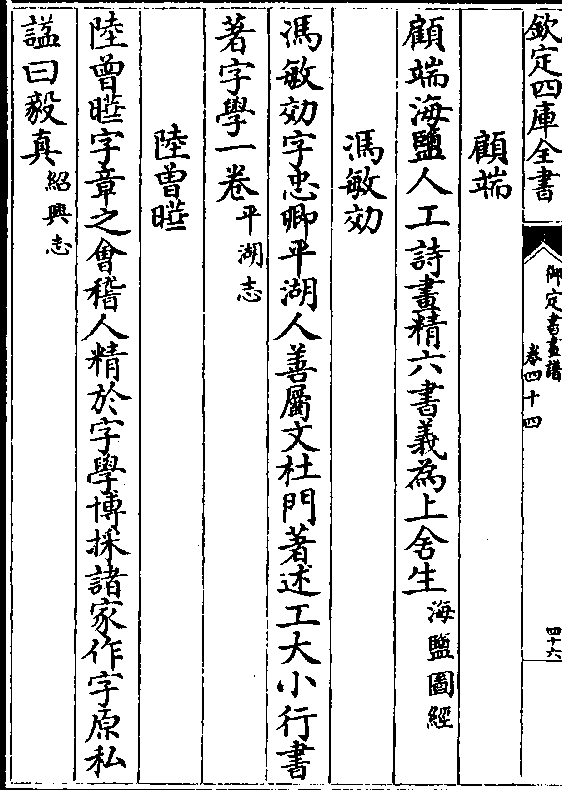 欽定四庫全書
御定書畫譜
卷四十四
四十六
顧端
顧端海鹽人工詩畫精六書義為上舍生海鹽圖經
馮敏効
馮敏効字忠卿平湖人善屬文杜門著述工大小行書
著字學一卷平湖志
陸曾曬
陸曾曬字章之會稽人精於字學博採諸家作字原私
諡曰毅真紹興志